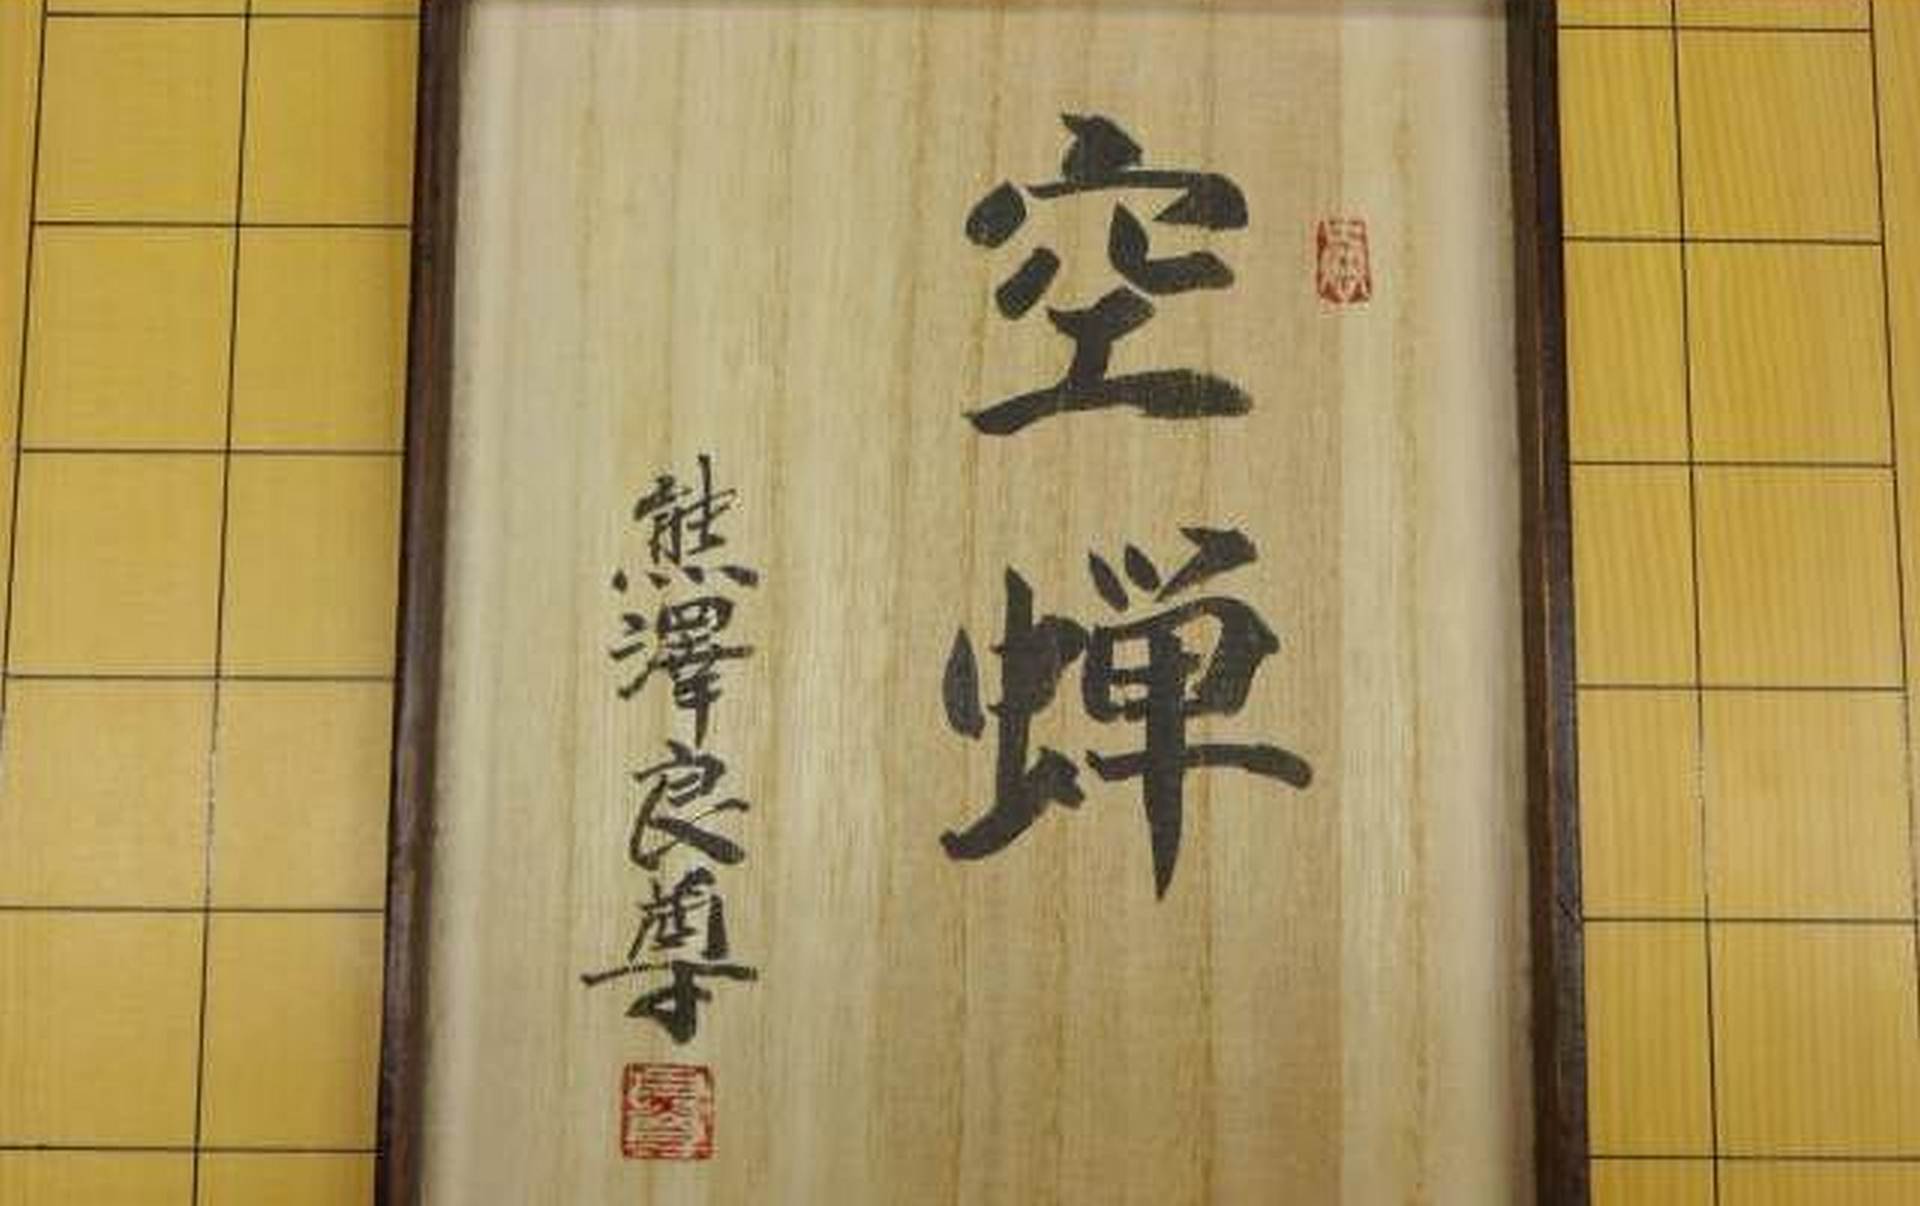 空蝉
熊澤良尊